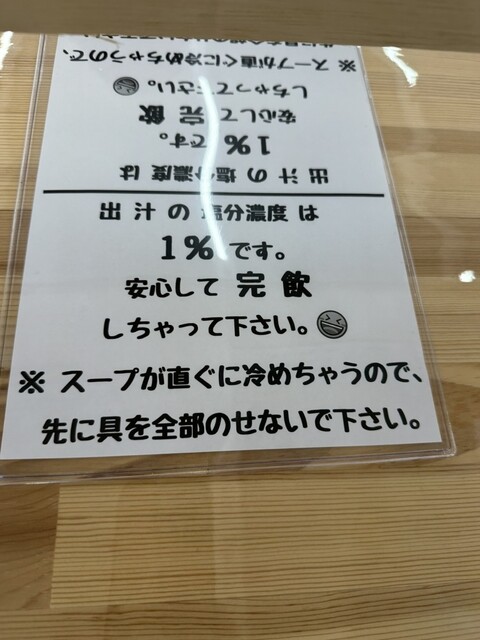 先に具を全部のせないで下さい。
※ スープが直ぐに冷めちゃうので、
しちゃって下さい。
安心して 完 飲
1% です。
出 汁 の 塩分濃度 は
出 汁 の 塩分濃度 は
1% です。
安心して 完 飲
しちゃって下さい。
※ スープが直ぐに冷めちゃうので、
先に具を全部のせないで下さい。